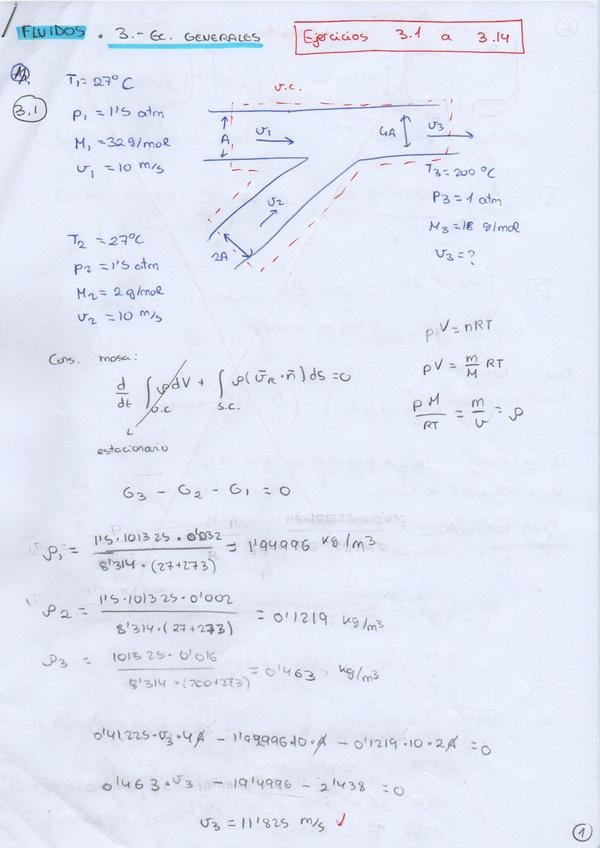 FLUIDOS . 3.- EC. GENERALES
Ejercicios 3.1 a 3.14
3.1
T₁ = 27ºC
P₁ = 1'5 atm
M₁ = 32 g/mol
v₁ = 10 m/s
v.c.
A
v₁
4A
v₃
v₂
2A
T₃ = 200 ºC
P₃ = 1 atm
M₃ = 18 g/mol
v₃ = ?
T₂ = 27ºC
P₂ = 1'5 atm
M₂ = 2 g/mol
v₂ = 10 m/s
pV = nRT
pV = m/M RT
pM/RT = m/v = ρ
Cons. masa:
d/dt ∫v.c. ρdV + ∫s.c. ρ(v̄R · n̄) ds = 0
estacionario
G₃ - G₂ - G₁ = 0
ρ₁ = 1'5 · 101325 · 0'032 / 8'314 · (27+273) = 1'94996 kg/m³
ρ₂ = 1'5 · 101325 · 0'002 / 8'314 · (27+273) = 0'1219 kg/m³
ρ₃ = 101325 · 0'016 / 8'314 · (200+273) = 0'463 kg/m³
0'41225 · v₃ · 4A - 1'94996 · 10 · A - 0'1219 · 10 · 2A = 0
0'463 · v₃ - 19'4996 - 2'438 = 0
v₃ = 11'825 m/s
1